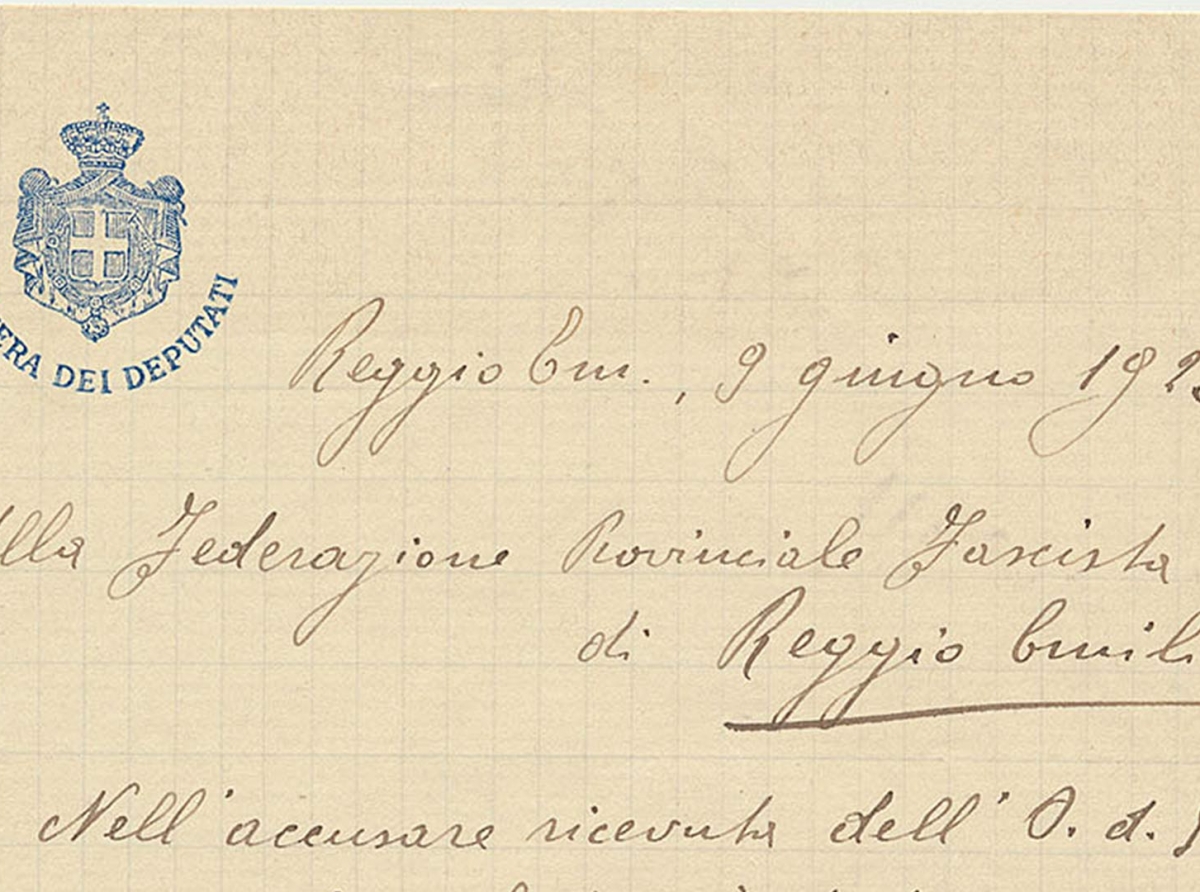 ERA DEI DEPUTATI
Reggio Em., 9 giugno 192
lla Federazione Provinciale Fascista
di Reggio Emili
Nell'accusare ricevuta dell'O. d.